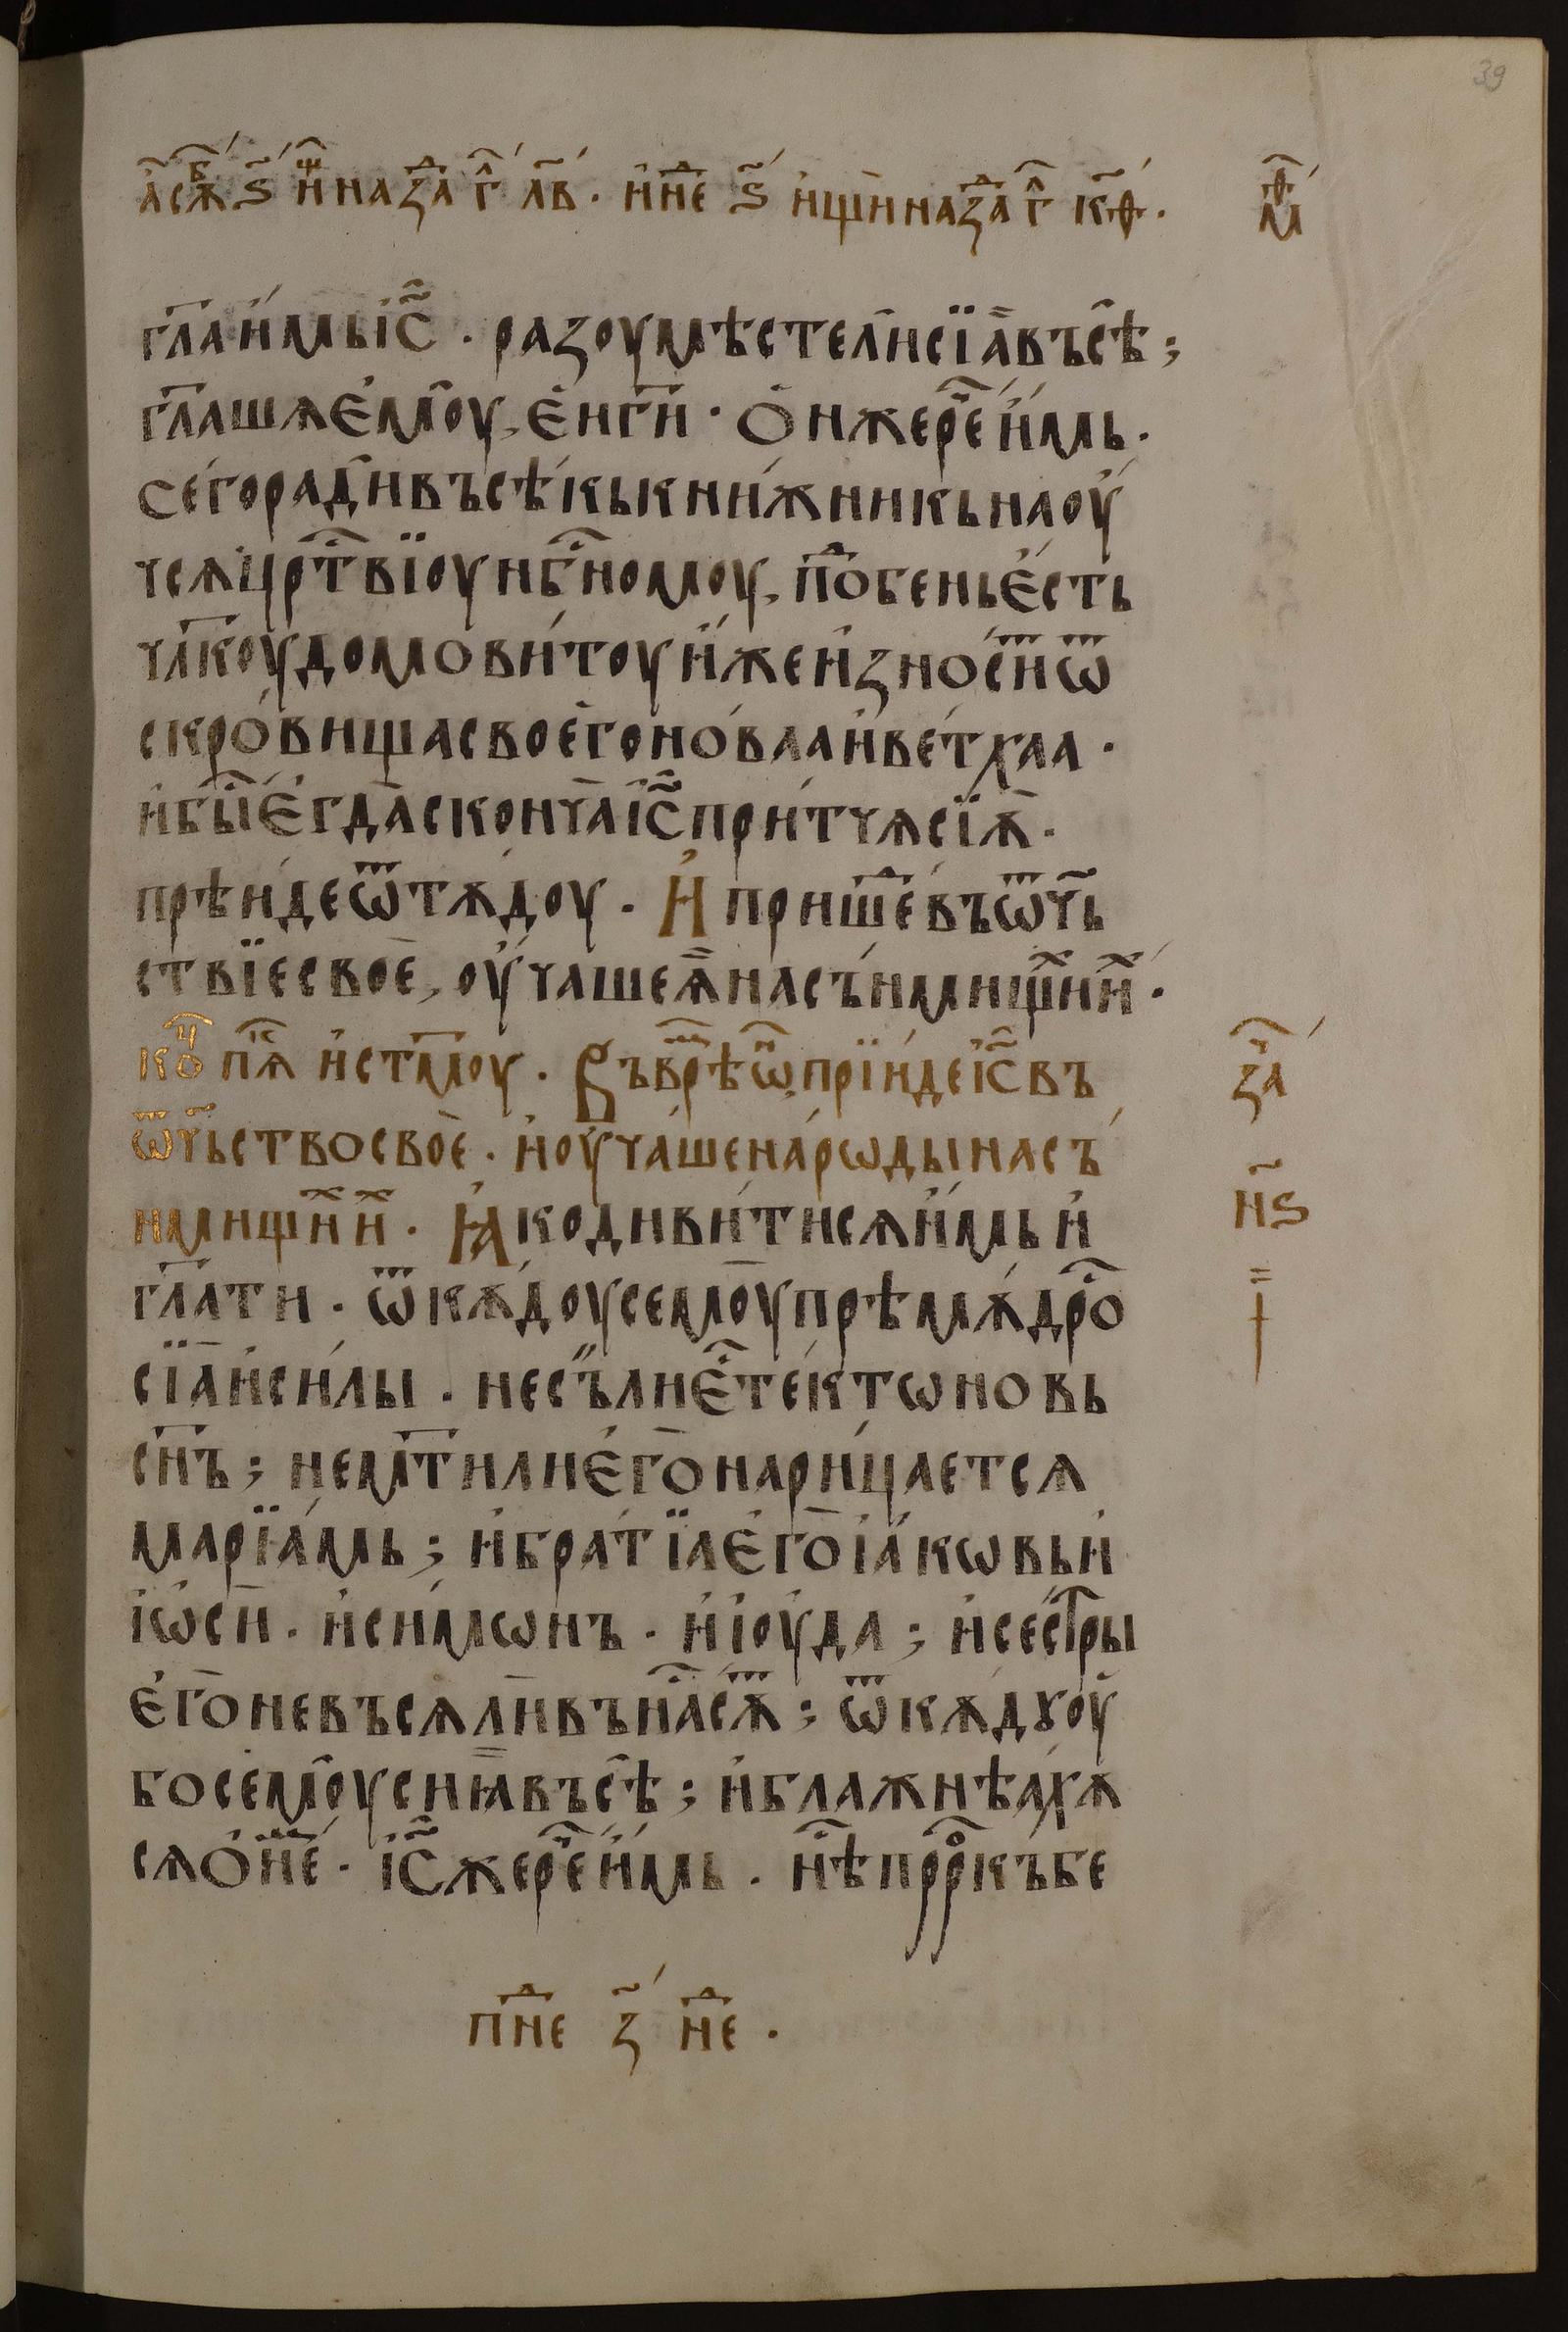 39
а҆ сѫⷠ҇ ѕ҃ и҆ⷳ на за̑ⷣ г҃ л҃в · и҆ нⷣе ѕ҃ и҆щѝ на заⷣ г҃ к҃ѳ · мⷴ҇
гл҃а и҆́мь і҆с҃ · разоумѣсте ли̑ сїа̑ въсѣ̑ ;
гл҃ашѧ є҆моу̑, є҆и̏ г҃и · Ѻн же рⷱ҇е и҆́мь ·
сего̀ ради̑ въсѣ́кь кни́жникь наоу҆́
чсѧ црⷭ҇твїоу нбⷭ҇номоу, поⷣбень є҆́сть
чл҃коу домови́тоу и҆́же и҆зно́ситⷮ ѿ
скро́вища свое҆го̀ но́ваа и҆ ве́тхаа ·
и҆ быⷭ҇ є҆гда̀ сконча̀ і҆с҃ при́тчѧ сїѧ̀ ·
прѣи́де ѿтѫ́доу · И҆ пришеⷣ въ ѿч҃ь
ствїе свое̏, оу҆чаше ѧ̏ на съ́нмищиⷯ иⷯ ·
коⷰ пⷦѧ и҆ ст҃моу · Въ врⷨѣ ѡⷩ, прїи́де і҆с҃ въ
ѿч҃ьство свое̏ · и҆ оу҆ча́ше наро́ды на съ́ заⷱ҇
нмищиⷯ иⷯ · Ꙗ҆ко диви́тисѧ и҆́мь и҆ н҃ѕ
гл҃ати · ѿкѫ́доу семоу̑ прѣмѫ́дроⷭ҇
сїа̀ и҆ си́лы · не съ́ ли є҆ⷭ҇ те́ктѡновь
сн҃ъ ; не мт҃и ли є҆го̀ нарица́етсѧ
марїа́мь ; и҆ бра́тїа є҆го̀ і҆а́кѡвь и҆
і҆ѡ҆си̑ · и҆ си́мѡнъ · и҆ і҆оу́да ; и҆ се́стры
є҆го̀ не въсѧ ли̑ въ наⷭ҇ сѫⷮ ; ѿкѫ́дꙋ оу҆́
бо семоу̑ сиꙗ̏ въсѣ̑ ; и҆ блажнѣа́хѫ
сѧ ѻ҆ неⷨ · і҆с҃ же рⷱ҇е и҆́мь · нⷭ҇ѣ прⷪ҇ркъ бе
пⷣне з҃ нⷣе ·